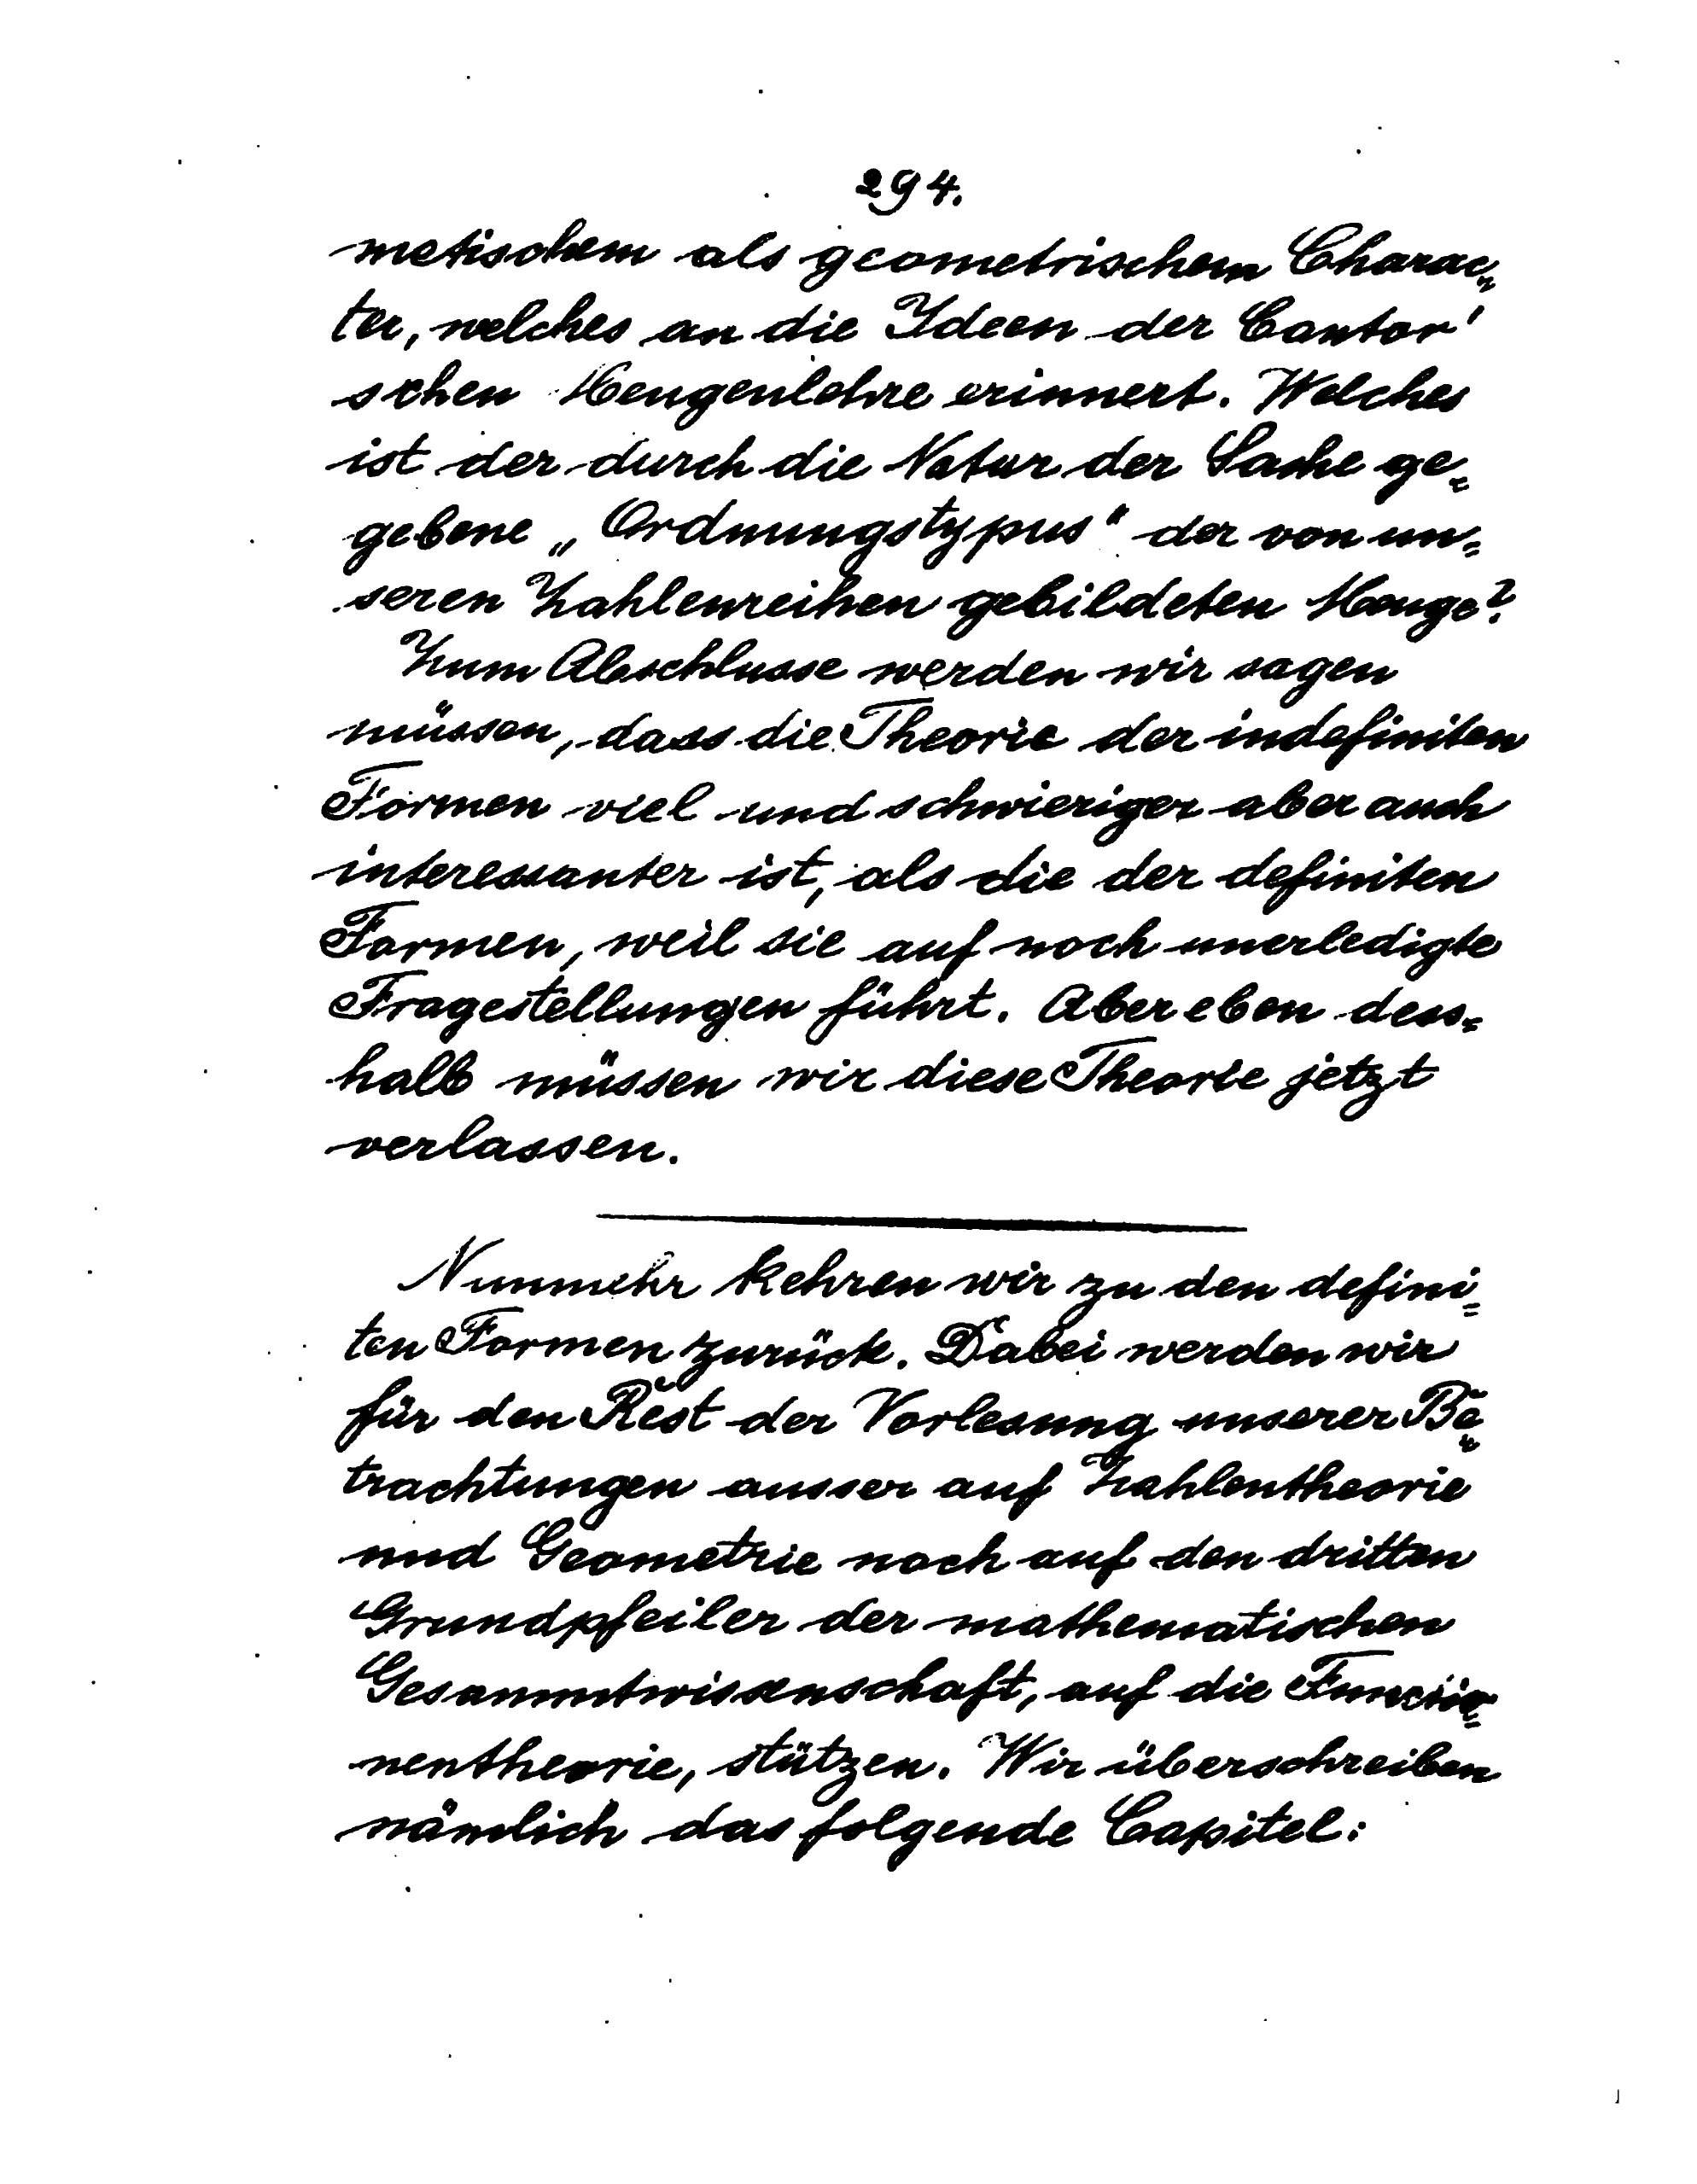 294.
metischem als geometrischem Charac=
ter, welches an die Ideen der Cantor'
schen Mengenlehre erinnert. Welches
ist der durch die Natur der Sache ge=
gebene „Ordnungstypus“ der von un=
seren Zahlenreihen gebildeten Menge?
Zum Abschlusse werden wir sagen
müssen, dass die Theorie der indefiniten
Formen viel und schwieriger aber auch
interessanter ist, als die der definiten
Formen, weil sie auf noch unerledigte
Fragestellungen führt. Aber eben dess=
halb müssen wir diese Theorie jetzt
verlassen.
Nunmehr kehren wir zu den defini=
ten Formen zurück. Dabei werden wir
für den Rest der Vorlesung unserer Be=
trachtungen ausser auf Zahlentheorie
und Geometrie noch auf den dritten
Grundpfeiler der mathematischen
Gesammtwissenschaft, auf die Functio=
nentheorie, stützen. Wir überschreiben
nämlich das folgende Capitel: